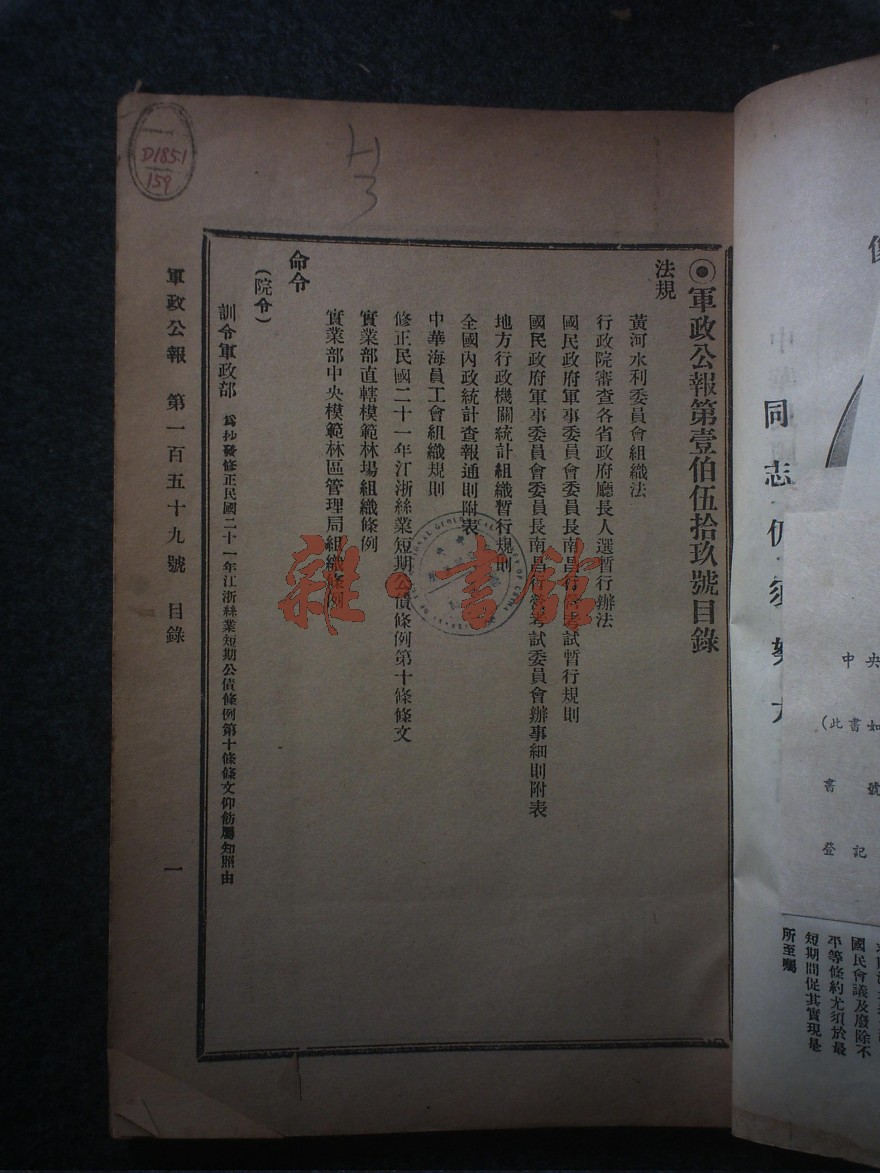 ◉軍政公報第壹伯伍拾玖號目錄
法規
黃河水利委員會組織法
行政院審查各省政府廳長人選暫行辦法
國民政府軍事委員會委員長南昌行營考試暫行規則
國民政府軍事委員會委員長南昌行營考試委員會辦事細則附表
地方行政機關統計組織暫行規則
全國內政統計查報通則附表
中華海員工會組織規則
修正民國二十一年江浙絲業短期公債條例第十條條文
實業部直轄模範林場組織條例
實業部中央模範林區管理局組織條例
命令
(院令)
訓令軍政部 為抄發修正民國二十一年江浙絲業短期公債條例第十條條文仰飭屬知照由
軍政公報 第一百五十九號 目錄 一
D185.1
159
H
3
雜·書館
同志仍
中央
(此書如
書 號
登記
國民會議及廢除不
平等條約尤須於最
短期間促其實現是
所至囑